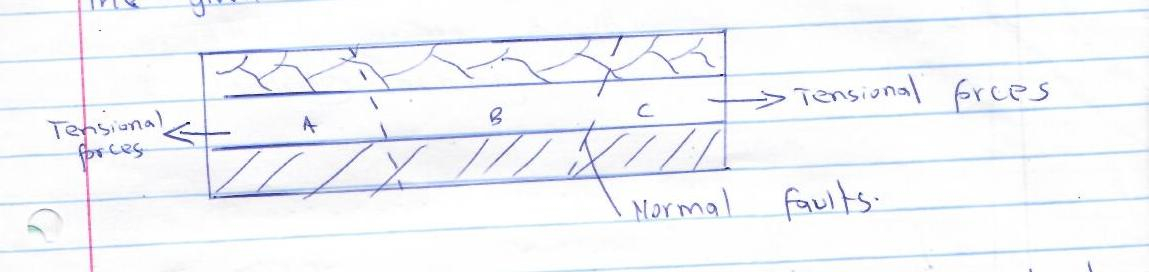 the giv
Tensional
forces
A
B
C
Tensional forces
Normal faults.